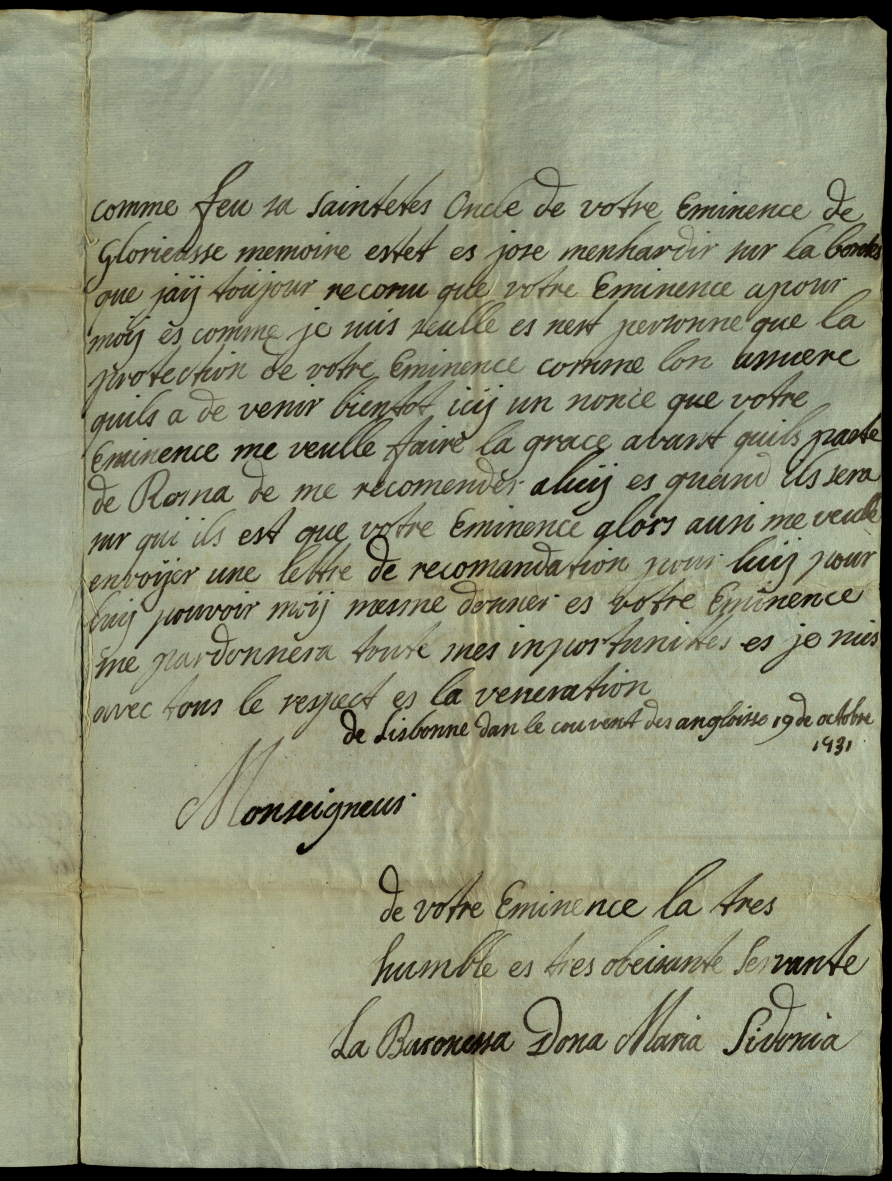 comme feu sa saintetes Oncle de votre Eminence de
Glorieusse memoire estet es jose menhardir sur la bontes
que jaÿ toüjour reconu que votre Eminence apour
moÿ es comme je suis seulle es nest personne que la
protection de votre Eminence comme lon assuere
quils a de venir bientot icÿ un nonce que votre
Eminence me veulle faire la grace avant quils parte
de Roma de me recomender aluÿ es quand ils sera
sur qui ils est que votre Eminence alors aussi me veulle
envoÿer une lettre de recomandation pour luÿ pour
luÿ pouvoir moÿ mesme donner es votre Eminence
me pardonnera toute mes inportunittes es je suis
avec tous le respect es la veneration
de Lisbonne dan le couvent des angloisse 19 de octobre
1731
Monseigneur
de votre Eminence la tres
humble es tres obeissante Servante
La Baronessa Dona Maria Sidonia